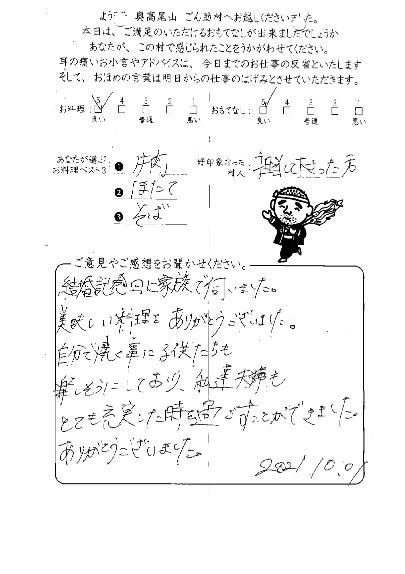 ようこそ 奥高尾山 ごん助村へお越しくださいました。
本日は、ご満足のいただけるおもてなしが出来ましたでしょうか
あなたが、この村で感じられたことをうかがわせてください。
耳の痛いお小言やアドバイスは、今日までのお仕事の反省といたします
そして、おほめの言葉は明日からの仕事のはげみとさせていただきます。
お料理: 5 4 3 2 1 おもてなし: 5 4 3 2 1
良い 普通 悪い 良い 普通 悪い
あなたが選ぶ
お料理ベスト3
❶
❷ ほたて
❸ そば
好印象だった
村人
ご意見やご感想をお聞かせください。
結婚記念日に家族で伺いました。
美味しい料理を ありがとうございました。
自分で焼く事に子供たちも
楽しそうにしており、私達夫婦も
とても充実した時を過ごすことができました。
ありがとうございました。
2021.10.01